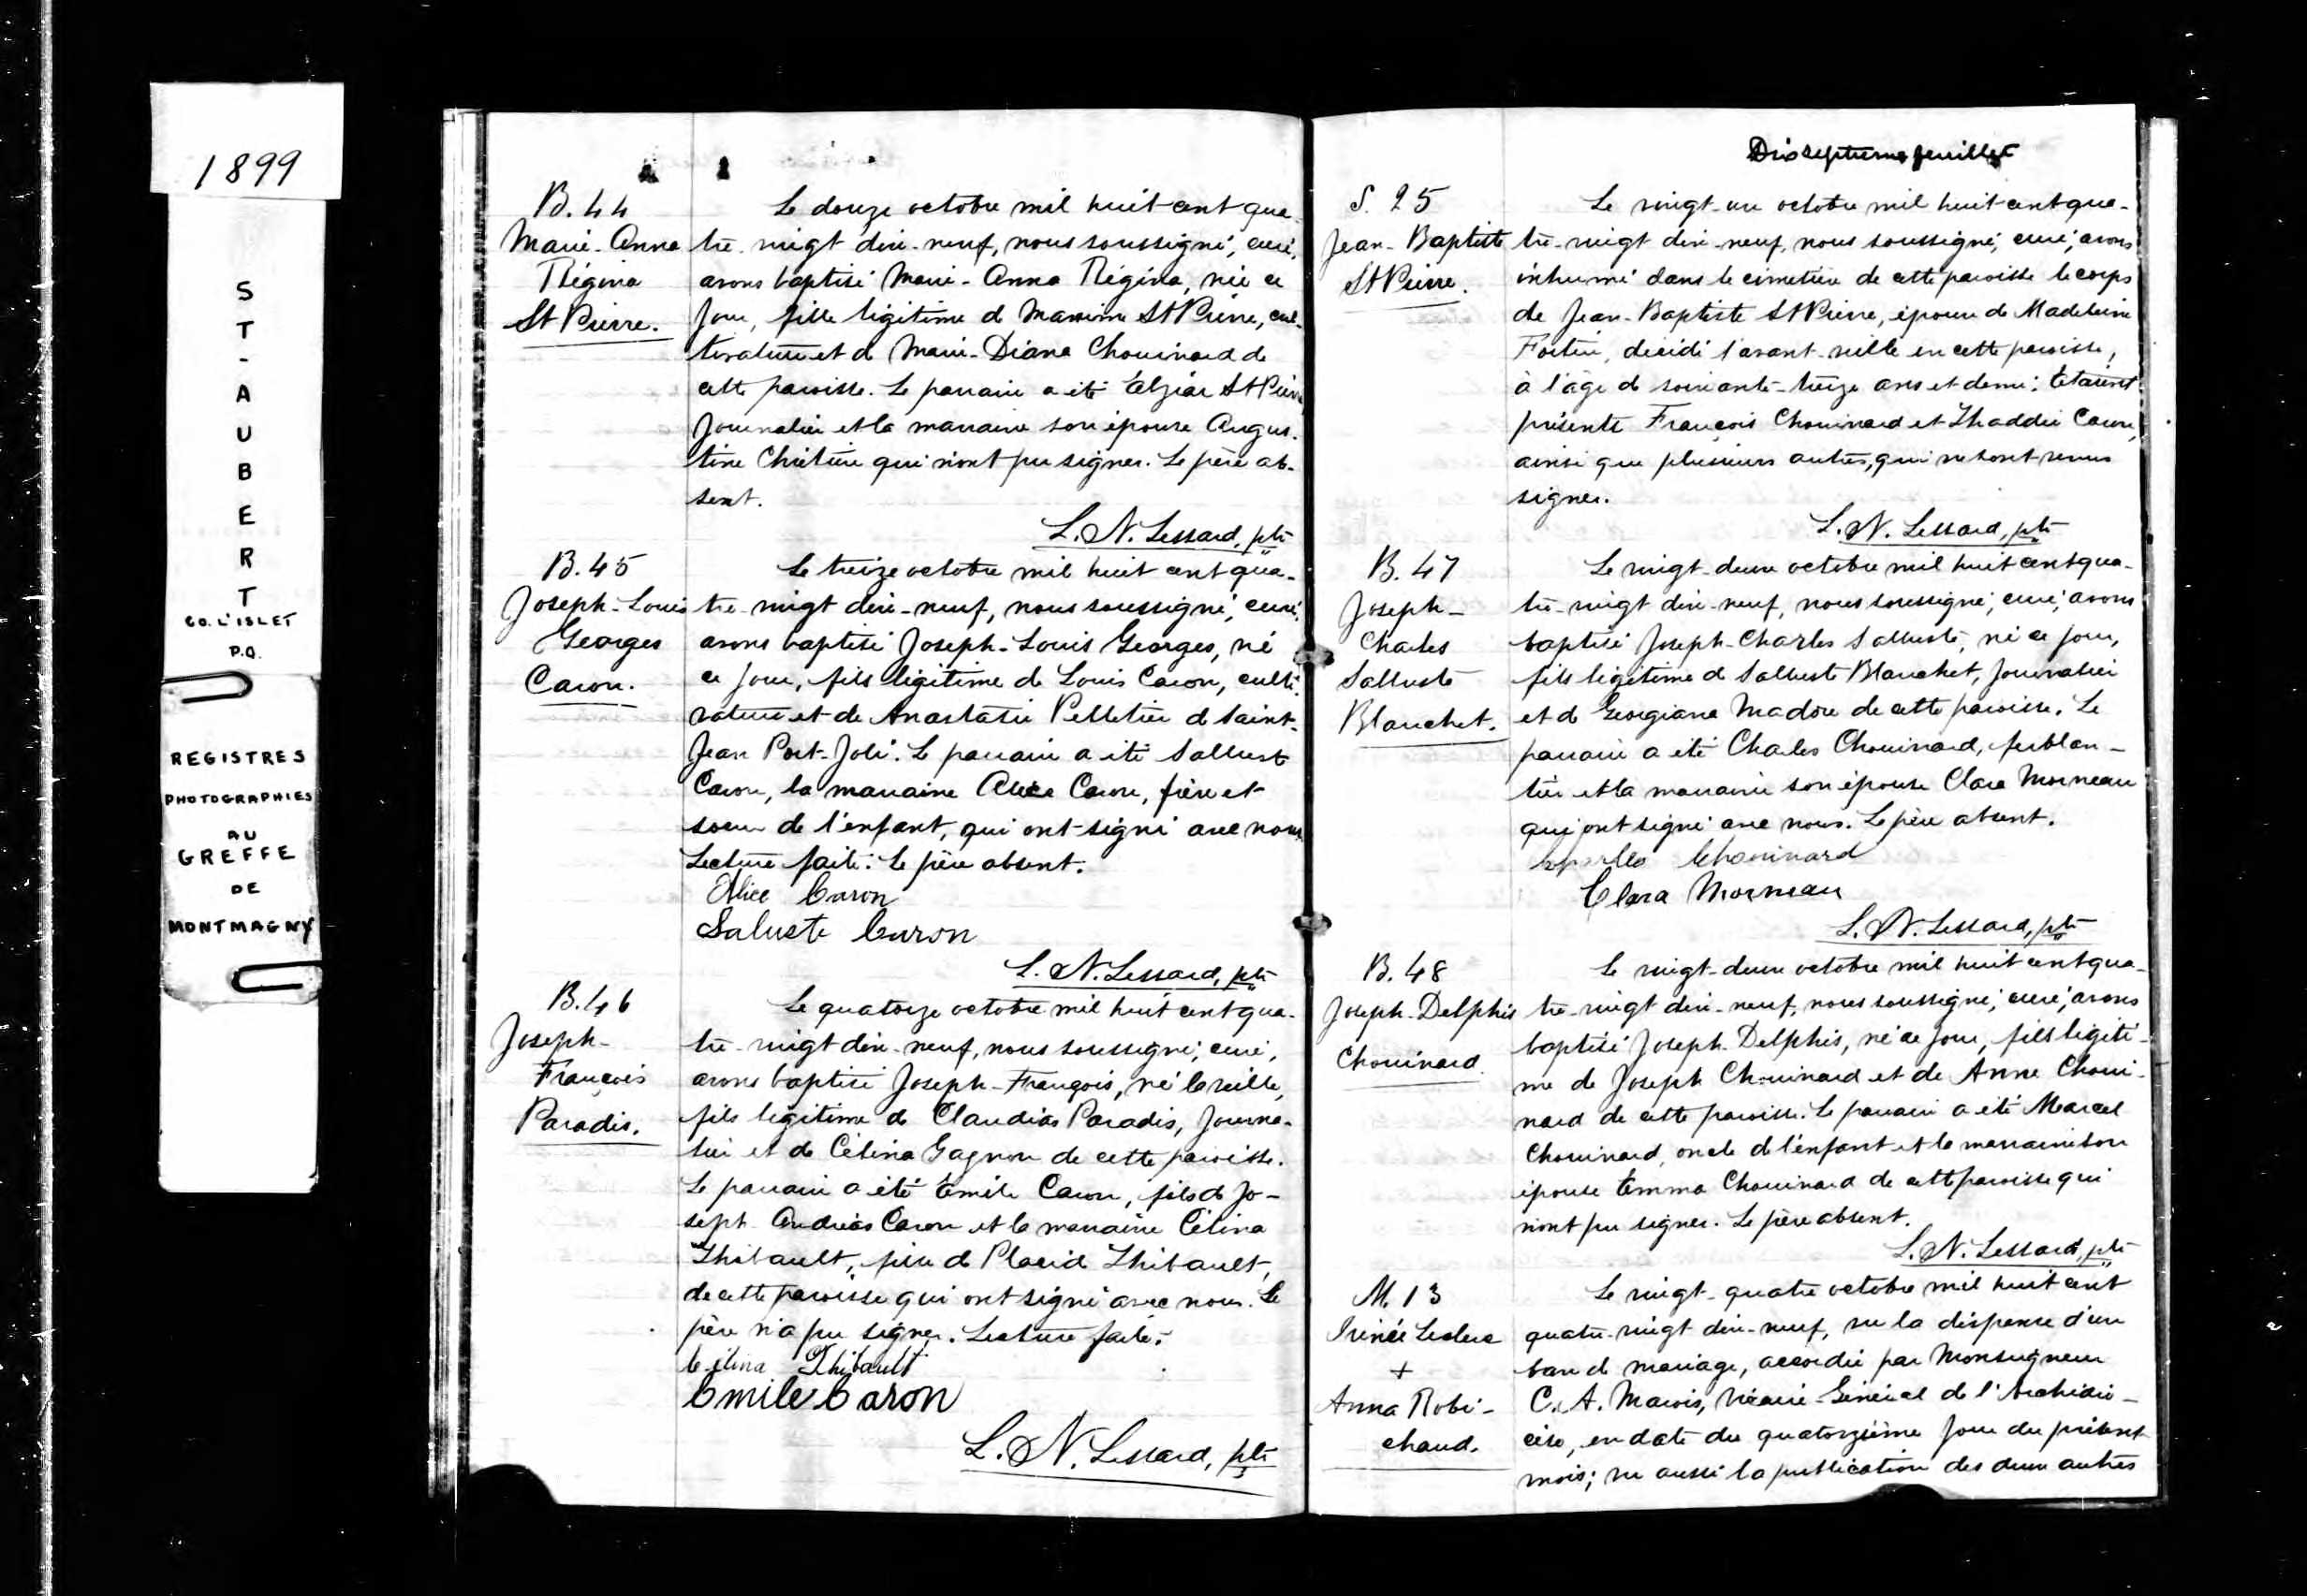 1899
ST-AUBERT
CO. L'ISLET
P.Q.
REGISTRES
PHOTOGRAPHIES
AU
GREFFE
DE
MONTMAGNY
B. 44
Marie-Anna
Régina
St Pierre.
Le douze octobre mil huit cent qua-
tre-vingt dix-neuf, nous soussigné, curé,
avons baptisé Marie-Anna Régina, née ce
jour, fille légitime de Maxime St Pierre, cul-
tivateur et de Marie-Diana Chouinard de
cette paroisse. Le parrain a été Elzéar St Pierre
journalier et la marraine son épouse Augus-
tine Chrétien qui n'ont pu signer. Le père ab-
sent.
L. N. Lessard, ptre
B. 45
Joseph-Louis
Georges
Caron.
Le treize octobre mil huit cent qua-
tre-vingt dix-neuf, nous soussigné, curé,
avons baptisé Joseph-Louis Georges, né
ce jour, fils légitime de Louis Caron, culti-
vateur et de Anastasie Pelletier de Saint-
Jean Port-Joli. Le parrain a été Salluste
Caron, la marraine Alice Caron, frère et
soeur de l'enfant, qui ont signé avec nous
Lecture faite. Le père absent.
Alice Caron
Saluste Caron
L. N. Lessard, ptre
B. 46
Joseph-
François
Paradis.
Le quatorze octobre mil huit cent qua-
tre-vingt dix-neuf, nous soussigné, curé,
avons baptisé Joseph-François, né la veille,
fils légitime de Claudias Paradis, journa-
lier et de Célina Gagnon de cette paroisse.
Le parrain a été Emile Caron, fils de Jo-
seph Andréas Caron et la marraine Célina
Thibault, de Placide Thibault,
de cette paroisse qui ont signé avec nous. Le
père n'a pu signer. Lecture faite.
Célina Thibault
Emile Caron
L. N. Lessard, ptre
Dix septième feuillet
S. 25
Jean-Baptiste
St Pierre.
Le vingt-un octobre mil huit cent qua-
tre-vingt dix-neuf, nous soussigné, curé, avons
inhumé dans le cimetière de cette paroisse le corps
de Jean-Baptiste St Pierre, époux de Madeleine
Fortin, décédé l'avant-veille en cette paroisse,
à l'âge de soixante-treize ans et demi. Etaient
présents François Chouinard et Thaddée Caron,
ainsi que plusieurs autres, qui ne
signer.
L. N. Lessard, ptre
B. 47
Joseph-
Charles
Salluste
Blanchet.
Le vingt-deux octobre mil huit cent qua-
tre-vingt dix-neuf, nous soussigné, curé, avons
baptisé Joseph-Charles Salluste, né ce jour,
fils légitime de Salluste Blanchet, journalier
et de Georgiana Madore de cette paroisse. Le
parrain a été Charles Chouinard, ferblan-
tier et la marraine son épouse Clara Morneau
qui ont signé avec nous. Le père absent.
Charles Chouinard
Clara Morneau
L. N. Lessard, ptre
B. 48
Joseph-Delphis
Chouinard
Le vingt-deux octobre mil huit cent qua-
tre-vingt dix-neuf, nous soussigné, curé, avons
baptisé Joseph-Delphis, né ce jour, fils légiti-
me de Joseph Chouinard et de Anne Choui-
nard de cette paroisse. Le parrain a été Marcel
Chouinard, oncle de l'enfant et la marraine son
épouse Emma Chouinard de cette paroisse qui
n'ont pu signer. Le père absent.
L. N. Lessard, ptre
M. 13
Irénée Leclerc
+
Anna Robi-
chaud.
Le vingt-quatre octobre mil huit cent
quatre-vingt dix-neuf, vu la dispense d'un
ban de mariage, accordée par Monseigneur
C. A. Marois, Vicaire-Général de l'Archidio-
cèse, en date du quatorzième jour du présent
mois; vu aussi la publication des deux autres